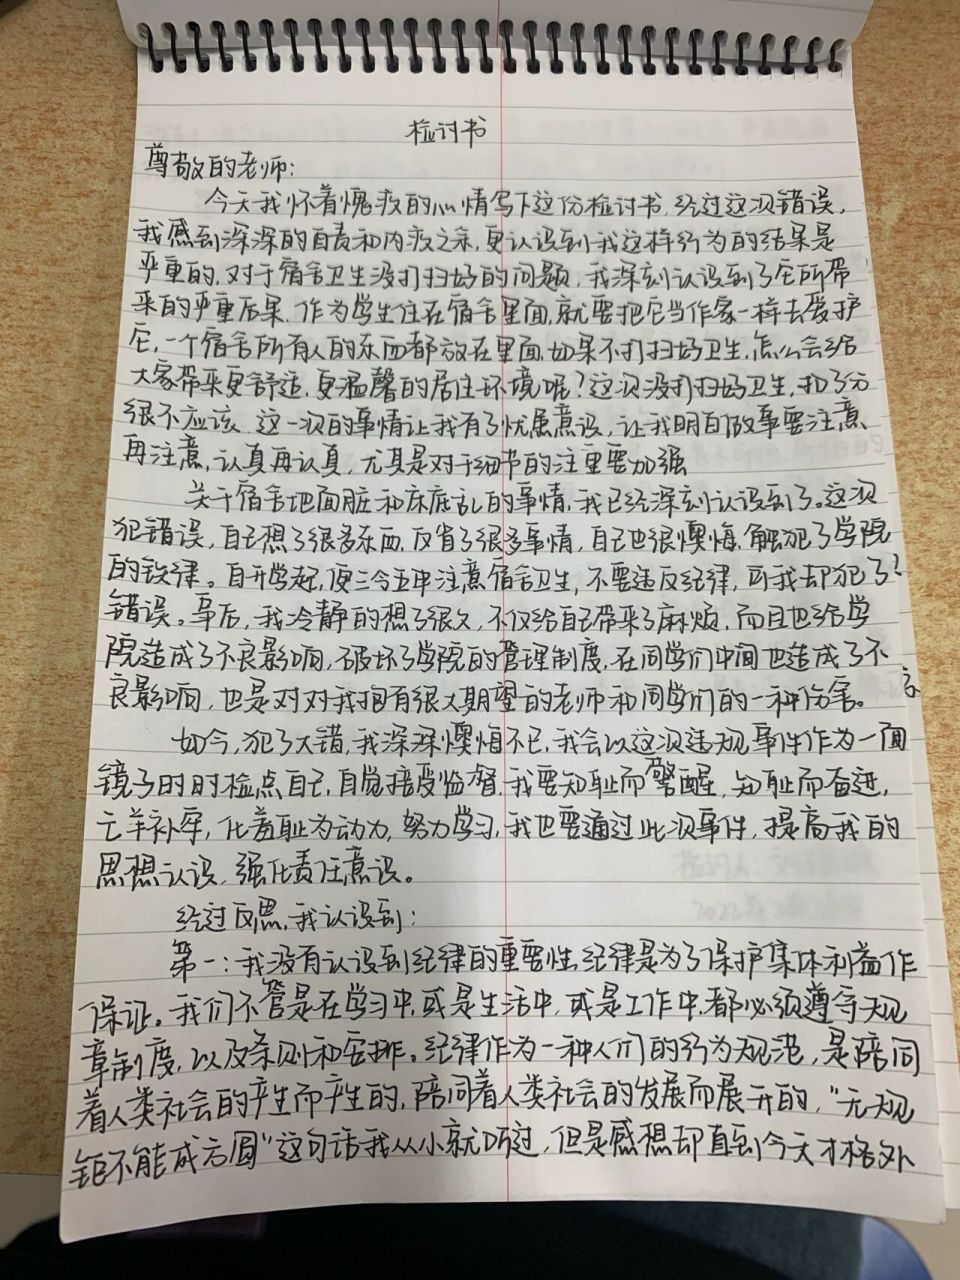 检讨书
尊敬的老师:
今天我怀着愧疚的心情写下这份检讨书,经过这次错误,
我感到深深的自责和内疚之余,更认识到我这样行为的结果是
严重的,对于宿舍卫生没打扫好的问题,我深刻认识到了它所带
来的严重后果.作为学生住在宿舍里面,就要把它当作家一样去爱护
它,一个宿舍所有人的东西都放在里面,如果不打扫好卫生,怎么会给
大家带来更舒适,更温馨的居住环境呢?这次没打扫好卫生,扣了分
很不应该.这一次的事情让我有了忧虑意识,让我明白做事要注意
再注意,认真再认真,尤其是对于细节的注重要加强
关于宿舍地面脏和床底乱的事情,我已经深刻认识到了。这次
犯错误,自己想了很多东西,反省了很多事情,自己也很懊悔,触犯了学院
的铁律。自开学起,便三令五申注意宿舍卫生,不要违反纪律,可我却犯了
错误。事后,我冷静的想了很久,不仅给自己带来了麻烦,而且也给学
院造成了不良影响,破坏了学院的管理制度,在同学们中间也造成了不
良影响,也是对对我抱有很大期望的老师和同学们的一种伤害。
如今,犯了大错,我深深懊悔不已,我会以这次违规事件作为一面
镜子时时检点自己,自觉接受监督,我要知耻而警醒,知耻而奋进,
亡羊补牢,化羞耻为动力,努力学习,我也要通过此次事件,提高我的
思想认识,强化责任意识。
经过反思,我认识到:
第一:我没有认识到纪律的重要性,纪律是为了保护集体利益作
保证。我们不管是在学习中,或是生活中,或是工作中,都必须遵守规
章制度,以及条则和安排。纪律作为一种人们的行为规范,是陪同
着人类社会的产生而产生的,陪同着人类社会的发展而展开的,"无规
矩不能成方圆"这句话我从小就听过,但是感想却直到今天才格外